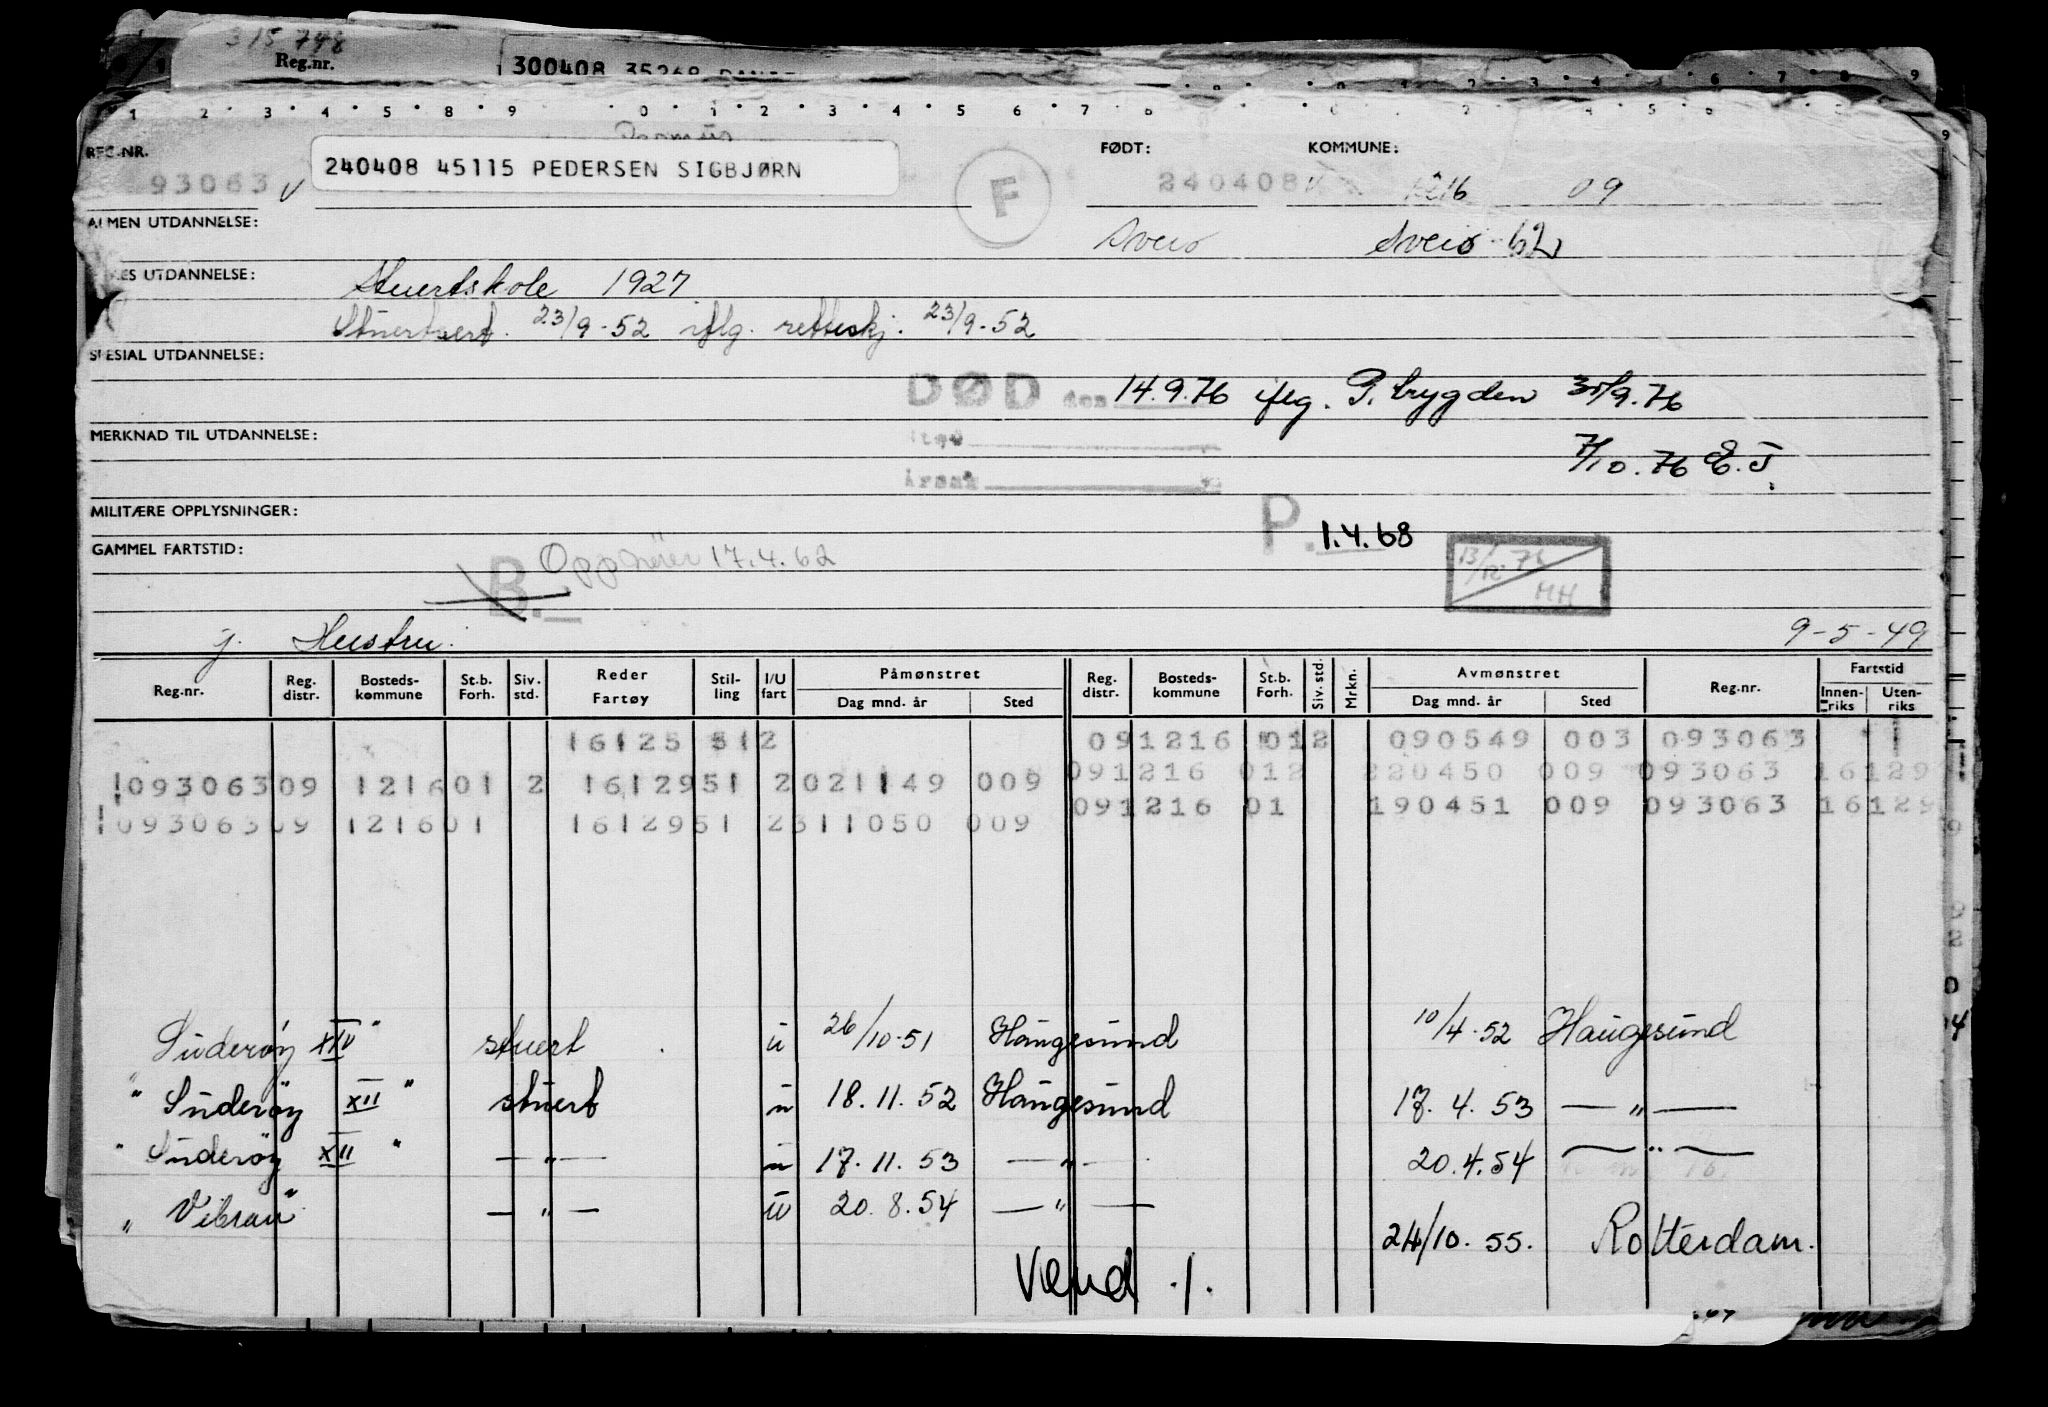 315 748
Reg.nr.
300408 35268
1 2 3 4 5 8 9 0 1 2 3 4 5 6 7 8
REG.NR.
93063 V
240408 45115 PEDERSEN SIGBJØRN
F
FØDT:
240408
KOMMUNE:
09
ALMEN UTDANNELSE:
Sveio Sveio 62
UTDANNELSE:
Stuertskole 1927
Stuertsert. 23/9-52 iflg. rettskj. 23/9-52
SPESIAL UTDANNELSE:
DØD den 14.9.76 iflg. P. trygden 30/9.76
MERKNAD TIL UTDANNELSE:
7/10.76 E.J.
Årsak
MILITÆRE OPPLYSNINGER:
P. 1.4.68
GAMMEL FARTSTID:
B. Opphører 17.4.62
13/12.76 HH
j. Hustru. 9-5-49
Reg.nr. Reg. distr. Bosteds-kommune St.b. Forh. Siv. std. Reder Fartøy Stil-ling I/U fart Påmønstret Dag mnd. år Sted Reg. distr. Bosteds-kommune St.b. Forh. Siv. std. Mrkn. Avmønstret Dag mnd. år Sted Reg.nr. Fartstid Innen-riks Uten-riks
16125 512 091216 012 090549 003 093063
109306309 121601 2 1612951 2021149 009 091216 012 220450 009 093063 16129
109306309 121601 1612951 2311050 009 091216 01 190451 009 093063 16129
Suderøy XIV" stuert u 26/10-51 Haugesund 10/4-52 Haugesund
" Suderøy XII" stuert u 18.11.52 Haugesund 17.4.53 — " —
" Suderøy XII" — " — u 17.11.53 — " — 20.4.54 — " —
" Vibran" — " — u 20.8.54 — " — 24/10.55. Rotterdam.
Vend .1.